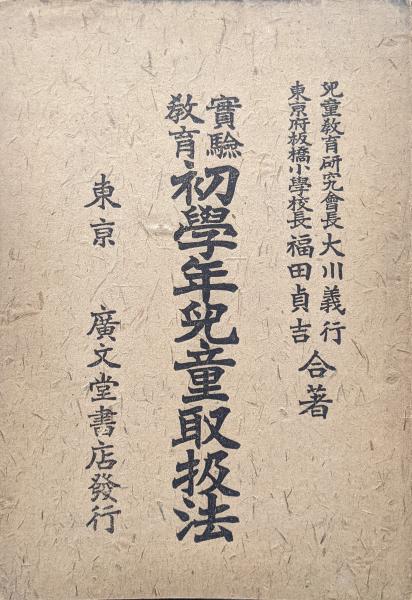 兒童教育研究會長大川義行
東京府板橋小學校長福田貞吉
合著
實驗
教育
初學年兒童取扱法
東京 廣文堂書店發行